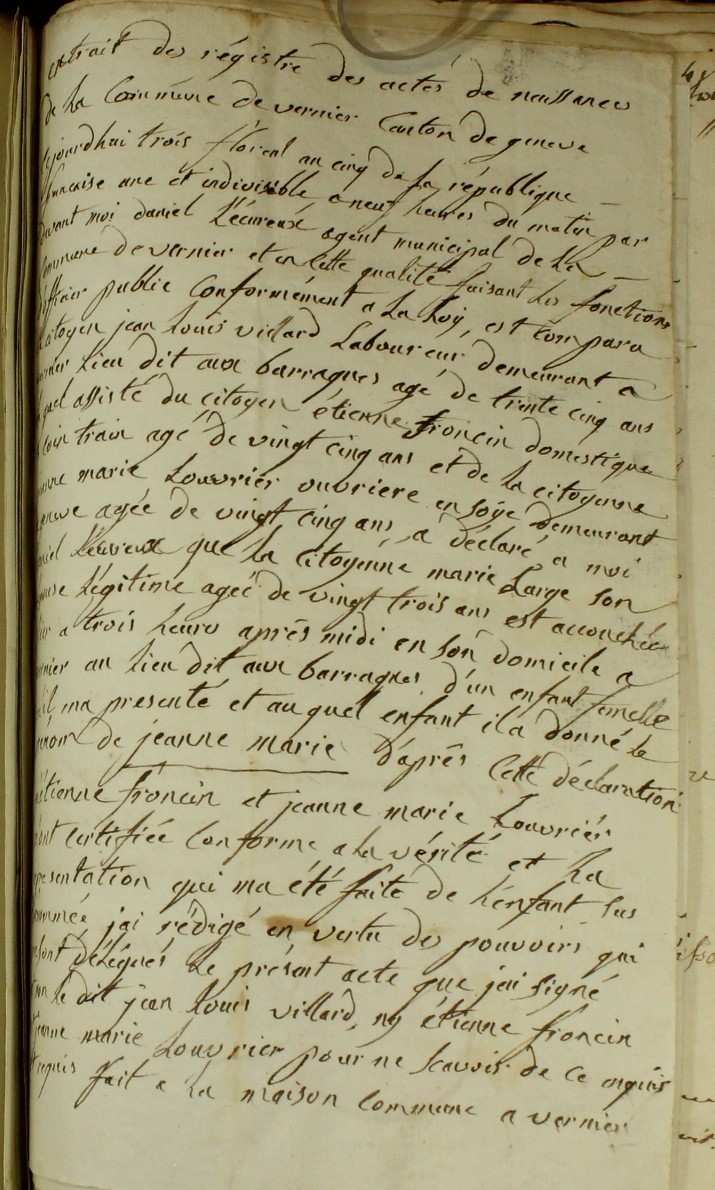 extrait des régistre des actes de naissances
de la Commune de vernier Canton de geneve
jourdhui trois floreal an cinq de la république
francaise une et indivisible, a neuf heures du matin par
devant moi daniel Lécureux agent municipal de la
Commune de vernier et en Cette qualité faisant les fonctions
officier public Conformément a la Loÿ, est Comparu
Citoyen jean Louis villard Laboureur demeurant a
vernier lieu dit aux barraques agé de trente cinq ans
lequel assisté du citoyen étienne froncin domestique
train agé de vingt cinq ans et de la citoyenne
jeanne marie Louvrier ouvriere en soÿe demeurant
geneve agée de vingt cinq ans, a déclaré a moi
daniel Lécureux que la citoyenne marie Large son
épouse légitime agée de vingt trois ans est accouchée
hier a trois heures après midi en son domicile a
vernier au lieu dit aux barraques d'un enfant femelle
quil ma presenté et au quel enfant il a donné le
prénom de jeanne marie d'après Cette déclaration
étienne froncin et jeanne marie Louvrier
mont certifiée Conforme a la vérité et la
représentation qui ma été faite de l'enfant sus
nommée jai rédigé en vertu des pouvoirs qui
me sont délégués Le présent acte que jai signé
non le dit jean Louis villard, ny étienne froncin
jeanne marie Louvrier pour ne scavoir de ce enquis
requis fait a la maison Commune a vernier